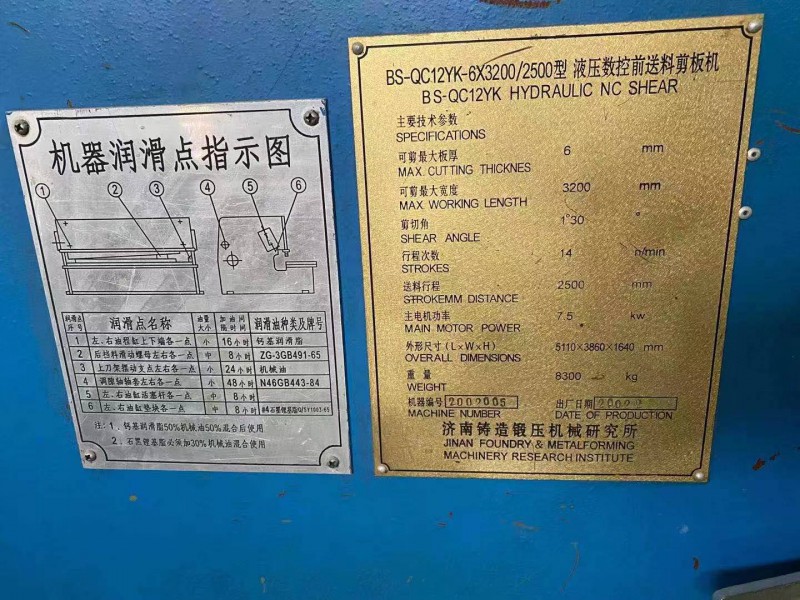 机器润滑点指示图
① ② ③ ④ ⑤ ⑥
润滑点序号 润滑点名称 油量大小 加油间隔时间 润滑油种类及牌号
1 左、右油程缸上下端各一点 小 16小时 钙基润滑脂
2 后挡料滑动螺母左右各一点 中 8小时 ZG-3GB491-65
3 上刀架摆动支点左右各一点 小 24小时 机械油
4 调隙轴轴套左右各一点 小 48小时 N46GB443-84
5 左、右油缸活塞杆各一点 中 8小时
6 左、右油缸垫块各一点 中 8小时
注:1、钙基润滑脂50%机械油50%混合后使用
2、石墨锂基脂必须加30%机械油混合使用
BS-QC12YK-6X3200/2500型 液压数控前送料剪板机
BS-QC12YK HYDRAULIC NC SHEAR
主要技术参数
SPECIFICATIONS
可剪最大板厚 6 mm
MAX. CUTTING THICKNES
可剪最大宽度 3200 mm
MAX. WORKING LENGTH
剪切角 1°30 °
SHEAR ANGLE
行程次数 14 n/min
STROKES
送料行程 2500 mm
STROKEMM DISTANCE
主电机功率 7.5 kw
MAIN MOTOR POWER
外形尺寸(L×W×H) 5110×3860×1640 mm
OVERALL DIMENSIONS
重量 8300 kg
WEIGHT
机器编号 2002005 出厂日期 2002
MACHINE NUMBER DATE OF PRODUCTION
济南铸造锻压机械研究所
JINAN FOUNDRY & METALFORMING
MACHINERY RESEARCH INSTITUTE